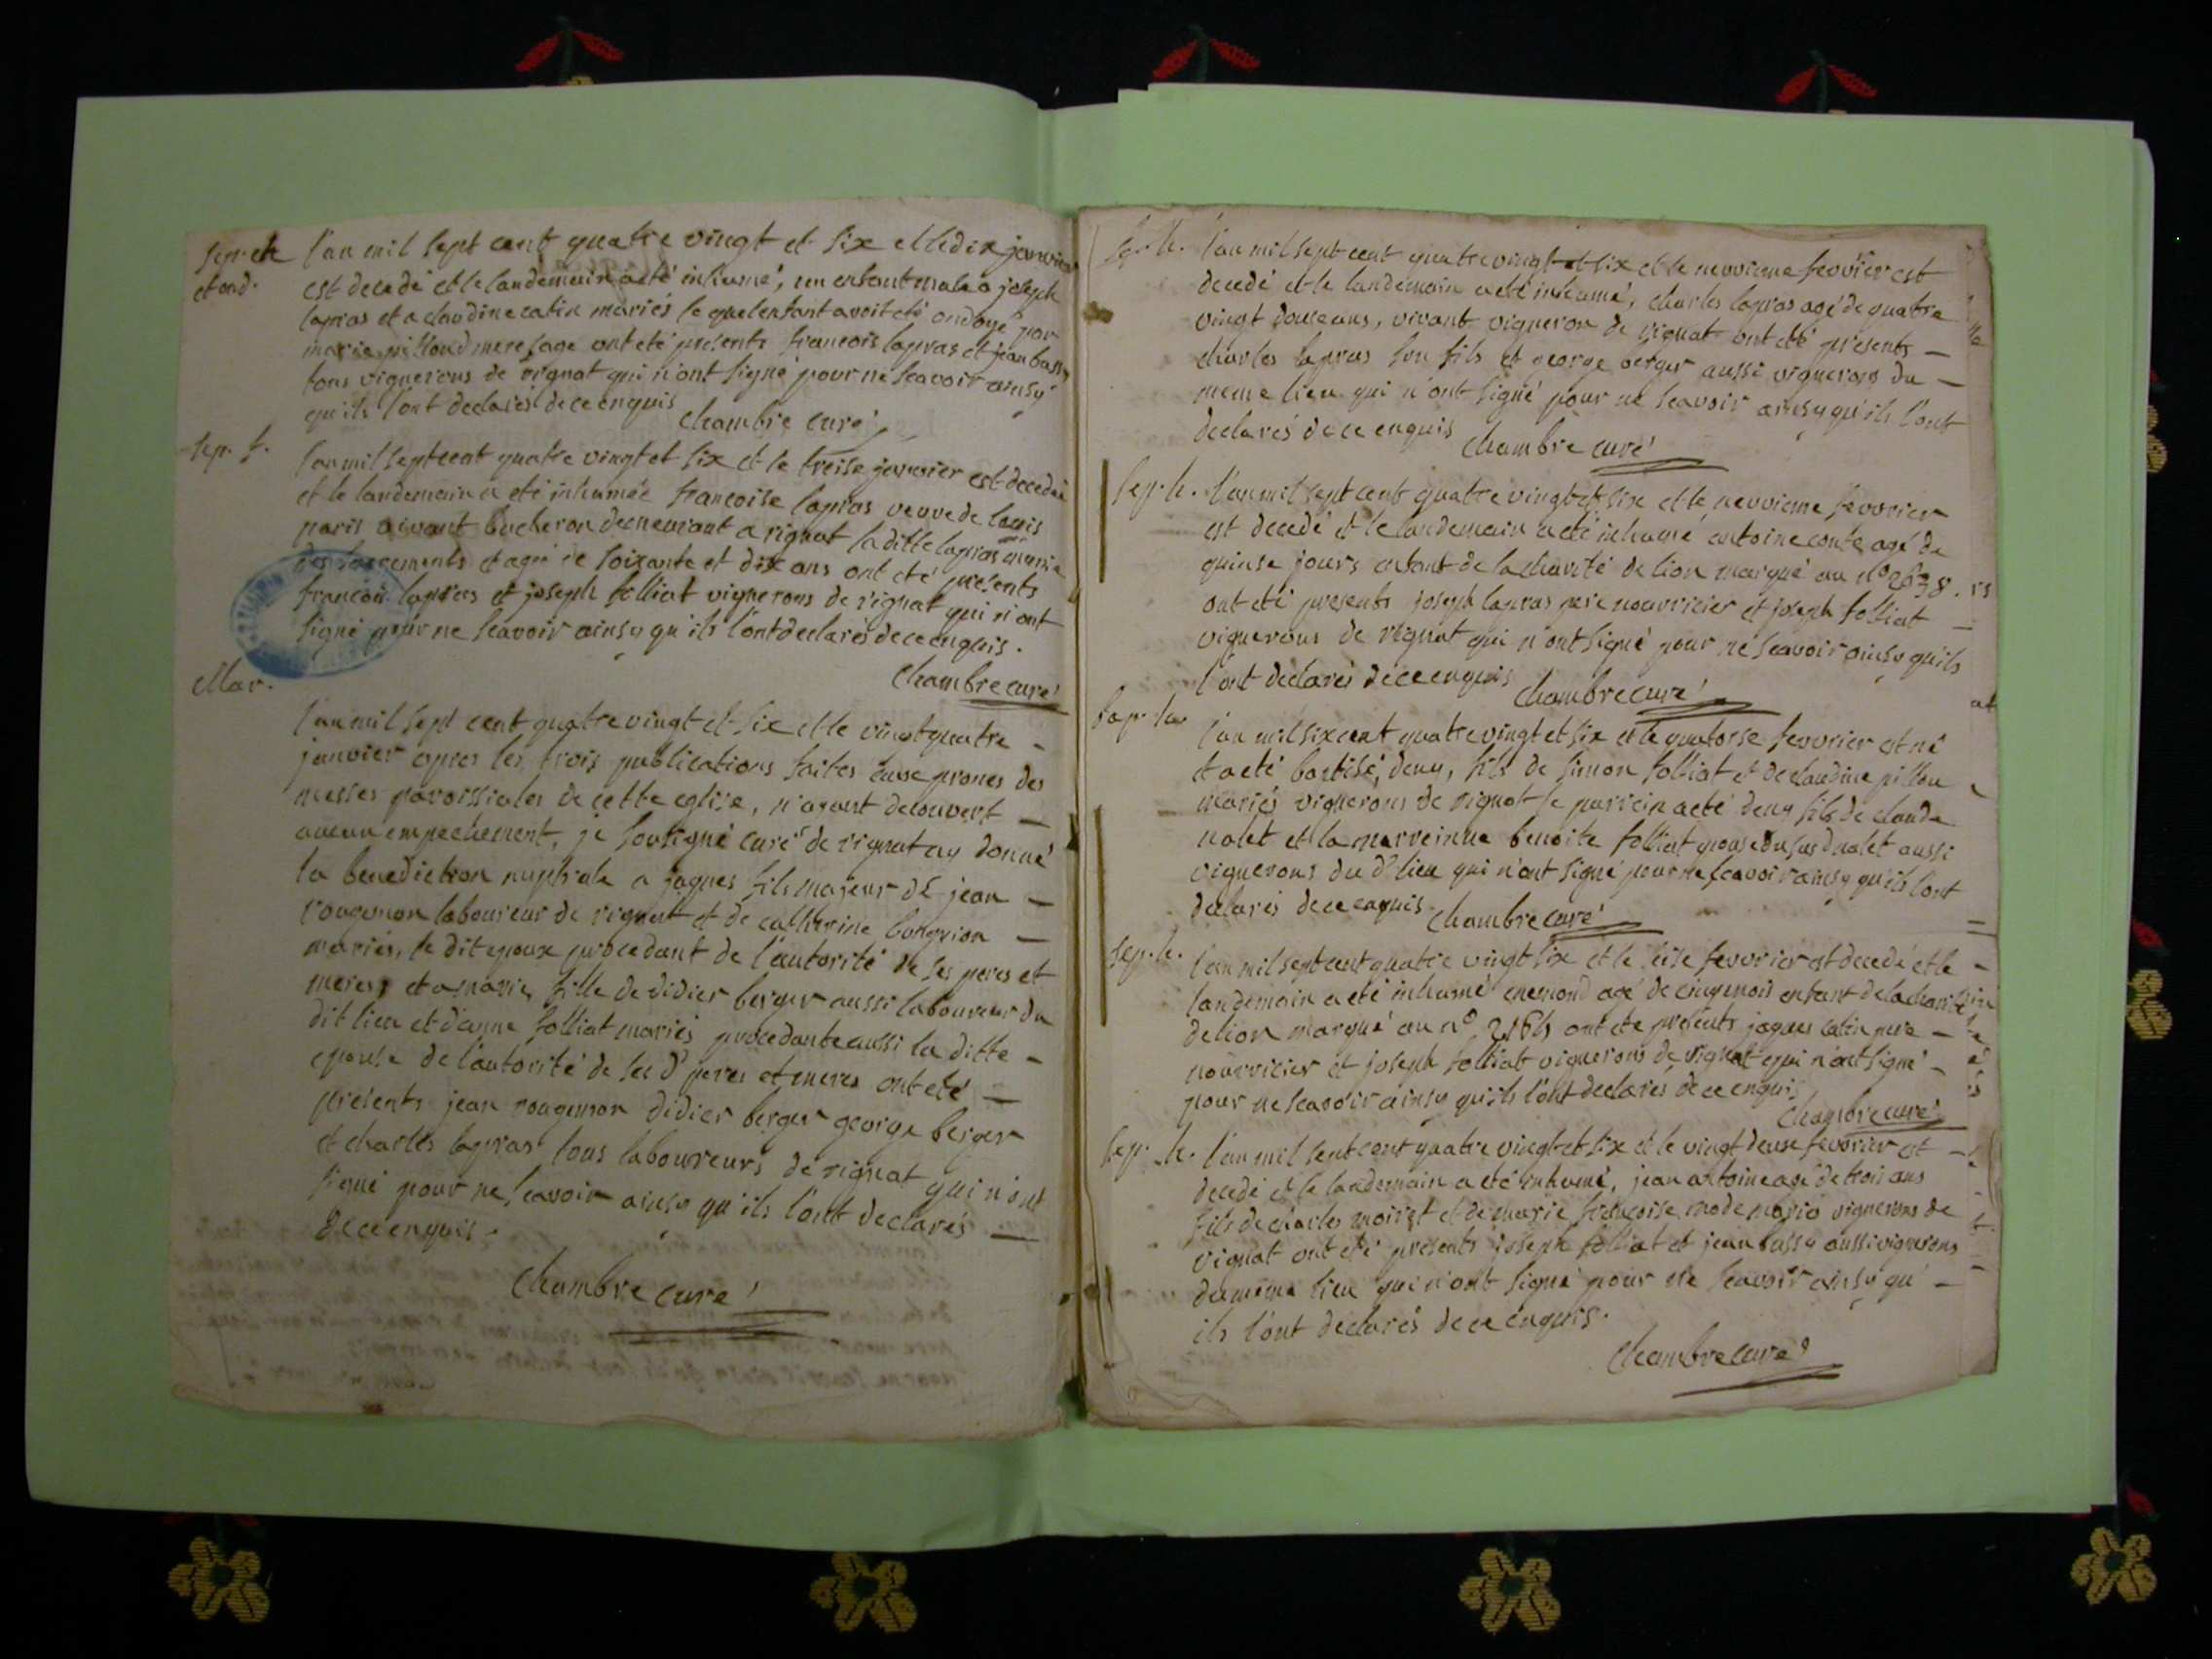 sep. et
et ond.
l'an mil sept cent quatre vingt et six et le dix janvier
est decedé et le landemain a eté inhumé, un enfant male a joseph
lapras et a claudine catin mariés le quel enfant avoit eté ondoyé par
marie pilloud mere sage ont eté présents francois lapras et jean bassy
tous vignerons de rignat qui n'ont signé pour ne scavoir ainsy
qu'ils l'ont declarés de ce enquis
chambre curé
sep. f.
l'an mil sept cent quatre vingt et six et le treise janvier est decedée
et le landemain a eté inhumée francoise lapras veuve de louis
paris vivant bucheron demeurant a rignat la ditte lapras munie
des sacrements et agée de soixante et dix ans ont eté présents
francois lapras et joseph folliat vignerons de rignat qui n'ont
signé pour ne scavoir ainsy qu'ils l'ont declarés de ce enquis.
chambre curé
Mar.
l'an mil sept cent quatre vingt et six et le vingt quatre
janvier apres les trois publications faites aux prones des
messes paroissiales de cette eglise, n'ayant decouvert
aucun empechement, je soussigné curé de rignat ay donné
la benediction nuptiale a jaques fils majeur de jean
rougemon laboureur de rignat et de catherine
mariés, le dit epoux procedant de l'autorité de ses peres et
meres et a marie fille de didier berger aussi laboureur du
dit lieu et d'anne folliat mariés procedante aussi la ditte
epouse de l'autorité de ses d' peres et meres ont eté
présents jean rougemon didier berger george berger
et charles lapras tous laboureurs de rignat qui n'ont
signé pour ne scavoir ainsy qu'ils l'ont declarés
de ce enquis.
chambre curé
sep. h.
l'an mil sept cent quatre vingt et six et le neuvieme fevrier est
decedé et le landemain a eté inhumé, charles lapras agé de quatre
vingt douse ans, vivant vigneron de rignat ont eté présents
charles lapras son fils et george berger aussi vignerons du
meme lieu qui n'ont signé pour ne scavoir ainsy qu'ils l'ont
declarés de ce enquis
chambre curé
sep. h.
l'an mil sept cent quatre vingt et six et le neuvieme fevrier
est decedé et le landemain a eté inhumé antoine conte agé de
quinse jours enfant de la charité de lion marqué au n° 2638.
ont eté présents joseph lapras pere nourricier et joseph folliat
vignerons de rignat qui n'ont signé pour ne scavoir ainsy qu'ils
l'ont declarés de ce enquis
chambre curé
bap. h.
l'an mil six cent quatre vingt et six et le quatorse fevrier est né
et a eté baptisé, deny, fils de simon folliat et de claudine pillou
mariés vignerons de rignat le parrein a eté deny fils de claude
nalet et la marreinne benoite folliat epouse du sus d nalet aussi
vignerons du d' lieu qui n'ont signé pour ne scavoir ainsy qu'ils l'ont
declarés de ce enquis.
chambre curé
sep. h.
l'an mil sept cent quatre vingt six et le seise fevrier est decedé et le
landemain a eté inhumé enemond agé de cinq mois enfant de la charité
de lion marqué au n° ont eté présents jaques catin pere
nourricier et joseph folliat vignerons de rignat qui n'ont signé
pour ne scavoir ainsy qu'ils l'ont declarés de ce enquis
chambre curé
sep. h.
l'an mil sept cent quatre vingt et six et le vingt deuse fevrier est
decedé et le landemain a eté inhumé, jean antoine agé de trois ans
fils de charles moiret et de marie francoise mode mariés vignerons de
rignat ont eté présents joseph folliat et jean bassy aussi vignerons
du meme lieu qui n'ont signé pour ne scavoir ainsy qu'
ils l'ont declarés de ce enquis.
chambre curé